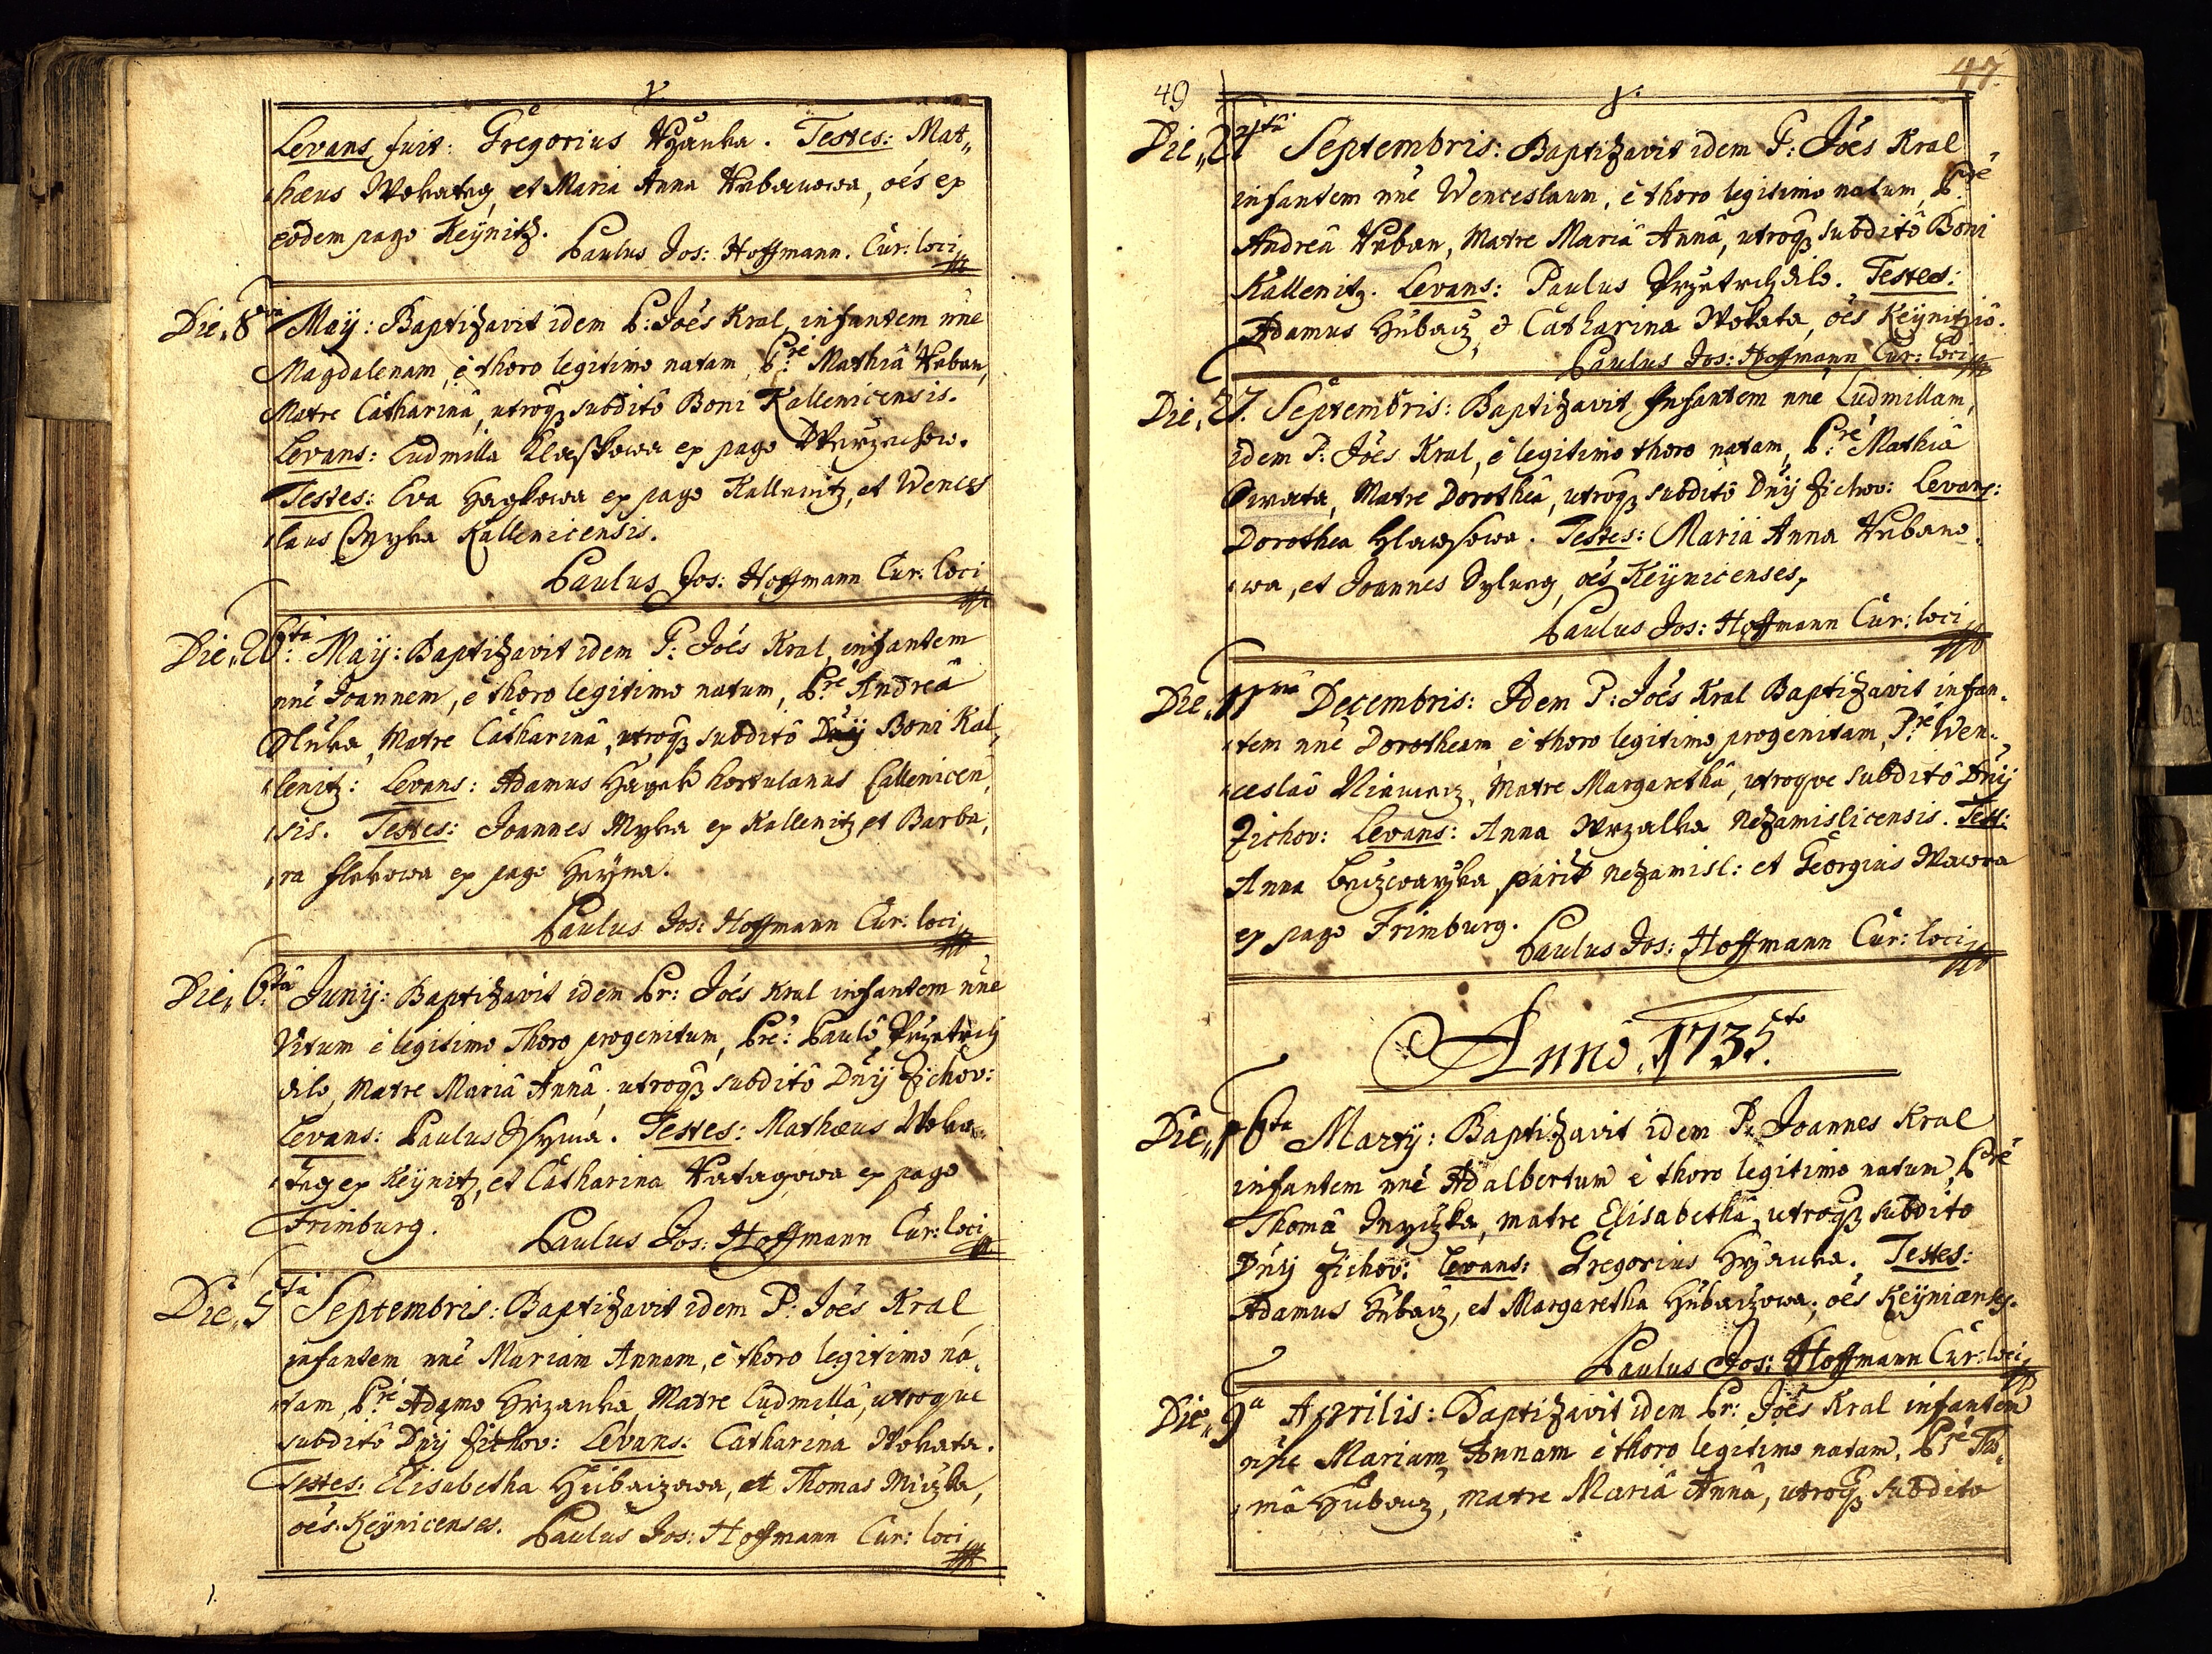 Levans fuit: Gregorius Hržanka. Testes: Mat„
„hæus Wokatey, et Maria Anna Urbanowa, oés ex
eodem pago Keÿnitz.
Paulus Jos: Hoffmann. Cur: loci
Die„ 8va Maÿ: Baptizavit idem P: Joés Kral infantem nñe
Magdalenam, è thoro legitimo natam, Pre Mathiâ Urban,
Matre Catharinâ, utroqß subditô Boni Kallenicensis.
Levans: Ludmilla ex pago
Testes: Eva Haykowa ex pago Kallenitz, et Wences
„laus Myka Kallenicensis.
Paulus Jos: Hoffmann Cur: loci
Die„ 26ta: Maÿ: Baptizavit idem P: Joés Kral, infantem
nñe Joannem, è thoro legitimo natum, Pre Andreâ
Dluha, Matre Catharinâ, utroqß subditô Boni Kal„
„lenitz: Levans: Adamus Hayek hortulanus Callenicen„
„sis. Testes: Joannes Myka ex Kallenitz, et Barba„
„ra Flekowa ex pago
Paulus Jos: Hoffmann Cur: loci
Die„ 6ta Junÿ: Baptizavit idem Pr: Joés Kral infantem nñe
Vitum è legitimo Thoro progenitum, Pre: Paulô Przetrch
dilo, Matre Mariâ Annâ, utroqß subditô Dnÿ Zichov:
Levans: Paulus Testes: Mathæus Woka„
„tey ex Keÿnitz, et Catharina Ratagowa ex pago
Frimburg.
Paulus Jos: Hoffmann Cur: loci
Die„ 5ta Septembris: Baptizavit idem P: Joés Kral
infantem nñe Mariam Annam, è thoro legitimo na„
„tam, Pre Adamo Hrzanka, Matre Ludmillâ, utroque
subditô Dnÿ Zichov: Levans: Catharina Wokata.
Testes: Elisabetha Hubaczowa, et Thomas Miczka,
oés Keÿnicenses.
Paulus Jos: Hoffmann Cur: loci
49
47.
Septembris: Baptizavit idem P: Joés Kral
infantem nñe Wenceslaum, è thoro legitimo natum, Pre
Andreâ Urban, Matre Mariâ Annâ, utroqß subditô Boni
Kallenitz. Levans: Paulus Przetrchdilo. Testes:
Adamus Hubacz, & Catharina Wokata, oés
Paulus Jos: Hoffmann Cur: loci
Die„ 27. Septembris: Baptizavit Infantem nñe Ludmillam,
idem P: Joés Kral, è legitimo thoro natam, Pre Mathiâ
Matre Dorotheâ, utroqß subditô Dnÿ Zichov: Levans:
Dorothea Testes: Maria Anna Urbano„
„wa, et Joannes oés Keÿnicenses,
Paulus Jos: Hoffmann Cur: loci
Die„ 11ma Decembris: Idem P: Joés Kral Baptizavit infan„
„tem nñe Dorotheam è thoro legitimo progenitam, Pre Wen„
„ceslaô Matre Margarethâ, utroque subditô Dnÿ
Zichov: Levans: Anna Wrzalka Nezamislicensis. Test:
Anna Nezamisl: et Georgius Wawra
ex pago Frimburg.
Paulus Jos: Hoffmann Cur: loci
Anno 1735to
Die„ 16ta Martÿ: Baptizavit idem P: Joannes Kral
infantem nñe Adalbertum è thoro legitimo natum, Pre
Thomâ matre Elisabethâ, utroqß subdito
Dnÿ Zichov: Levans: Gregorius Hrzanka. Testes:
Adamus Hubacz, et Margaretha Hubaczowa; oés Keÿnicenses.
Paulus Jos: Hoffmann Cur: loci
Die„ 9a Aprilis: Baptizavit idem Pr: Joés Kral infantem
nñe Mariam Annam è thoro legitimo natam, Pre Tho„
„mâ Hubacz, matre Mariâ Annâ, utroqß subdito